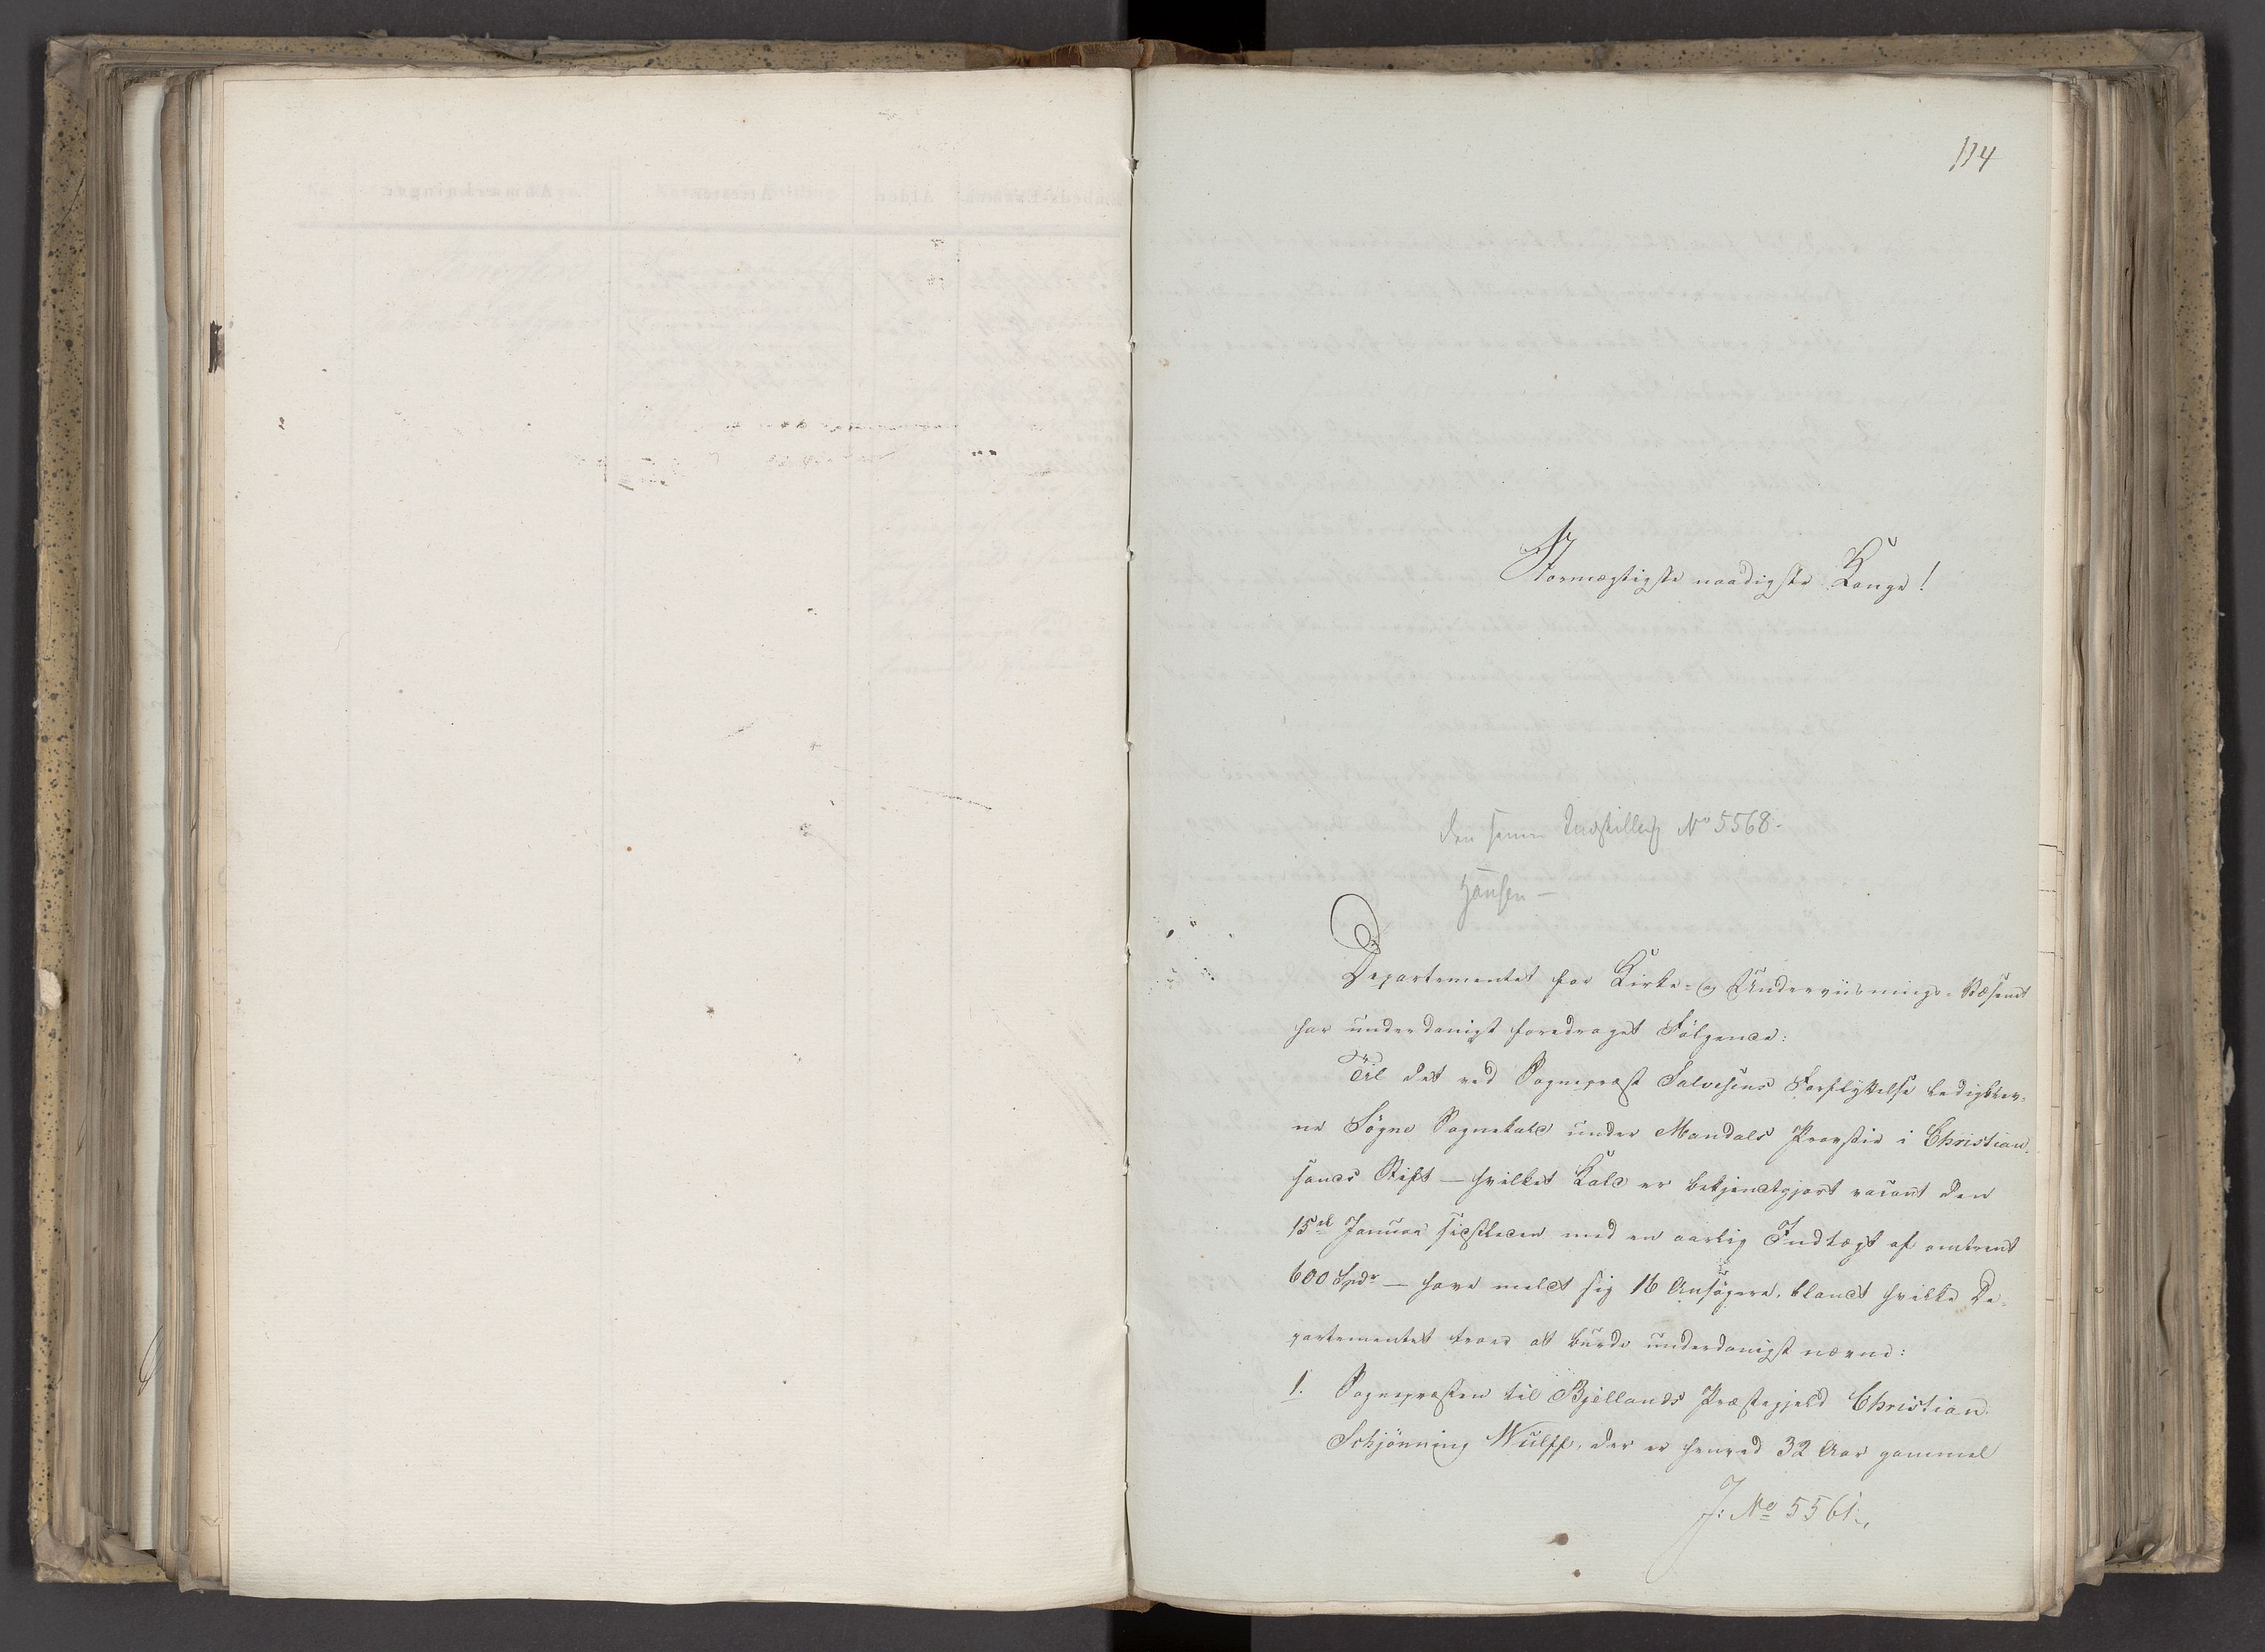 114
Stormægtigste naadigste Konge!
Indstilling No 5568.
Hansen —
Departementet for Kirke- og Underviisnings-Væsenet
har underdanigst foredraget Følgende:
Til det ved Sognepræst Salvesens Forflyttelse ledigblev-
ne Søgne Sognekald under Mandals Provstie i Christian-
sands Stift — hvilket Kald er bekjendtgjort vacant den
15de Januar sidstleden med en aarlig Indtægt af omtrent
600 Spdr — have meldt sig 16 Ansøgere, blandt hvilke De-
partementet troer at burde underdanigst nævne:
1. Sognepræsten til Bjellands Præstegjeld Christian
Schjönning Wulff, der er henved 32 Aar gammel
J: No 5561.